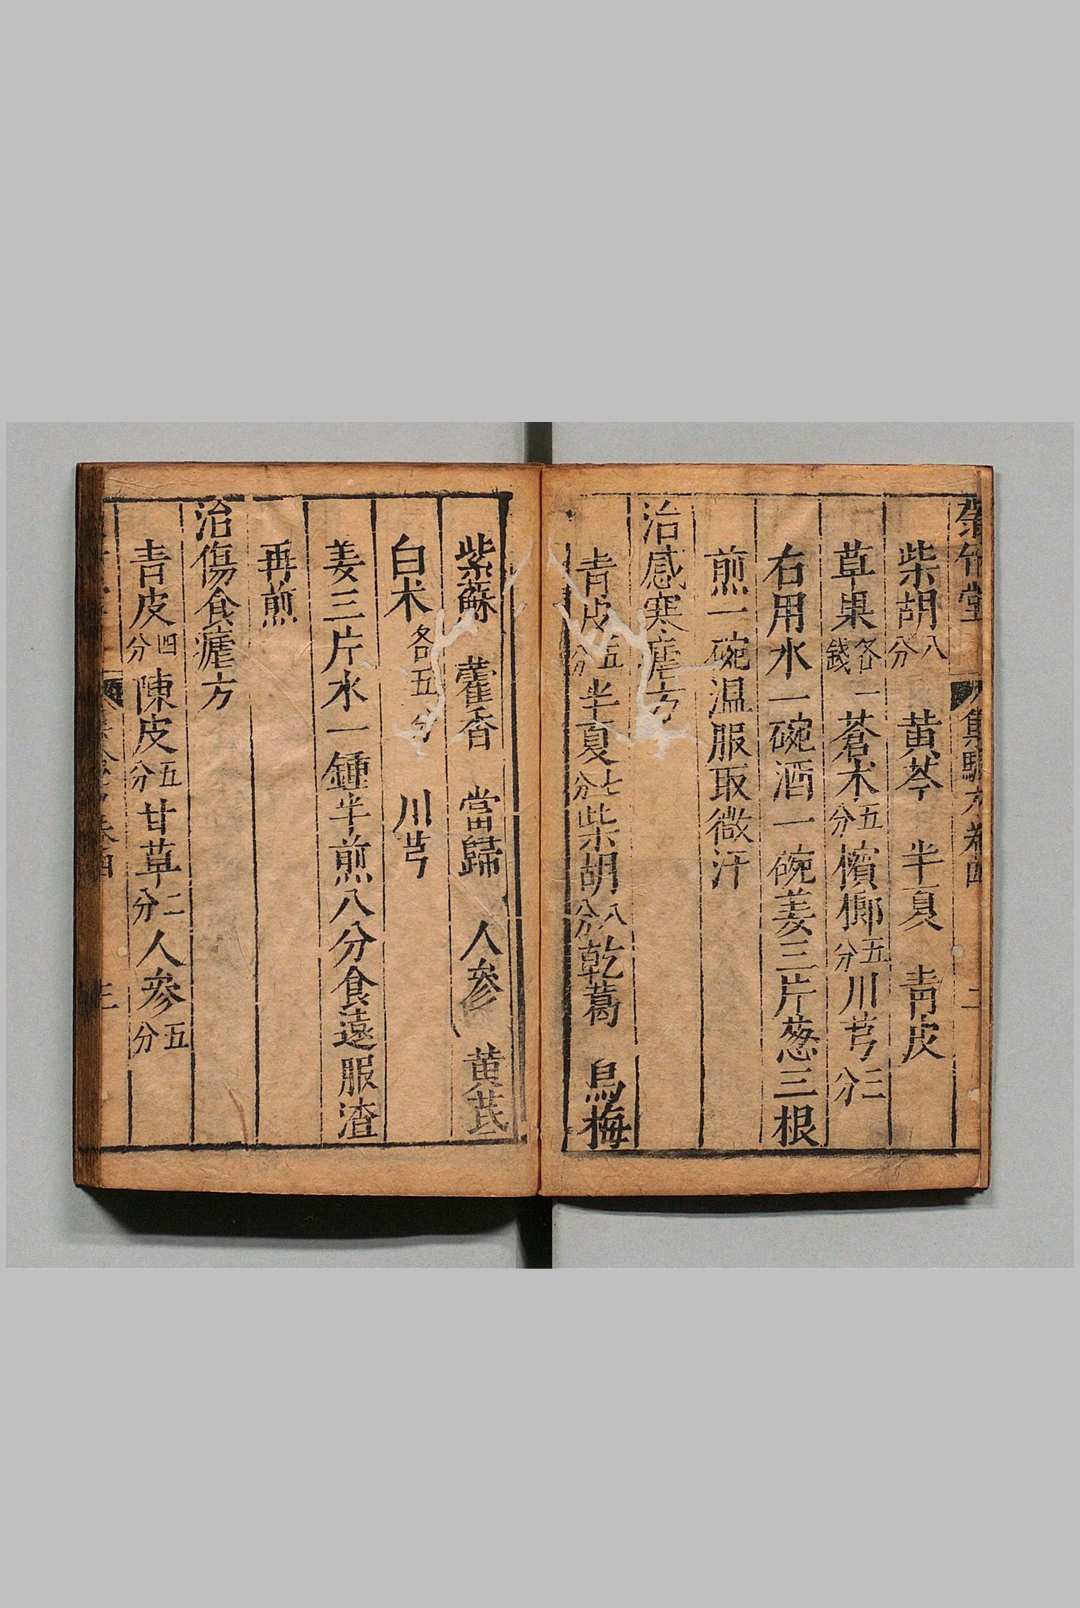 竹堂 集驗方卷四 二
柴胡八分 黄芩 半夏 青皮
草果各一錢 蒼术五分 檳榔五分 川芎三分
右用水一碗酒一碗姜三片葱三根
煎一碗温服取微汗
治感寒瘧方
青皮五分 半夏七分 柴胡八分 乾葛 烏梅
紫蘇 藿香 當歸 人參 黄芪
白术各五分 川芎
姜三片水一鍾半煎八分食遠服渣
再煎
治傷食瘧方
青皮四分 陳皮五分 甘草二分 人參五分
三